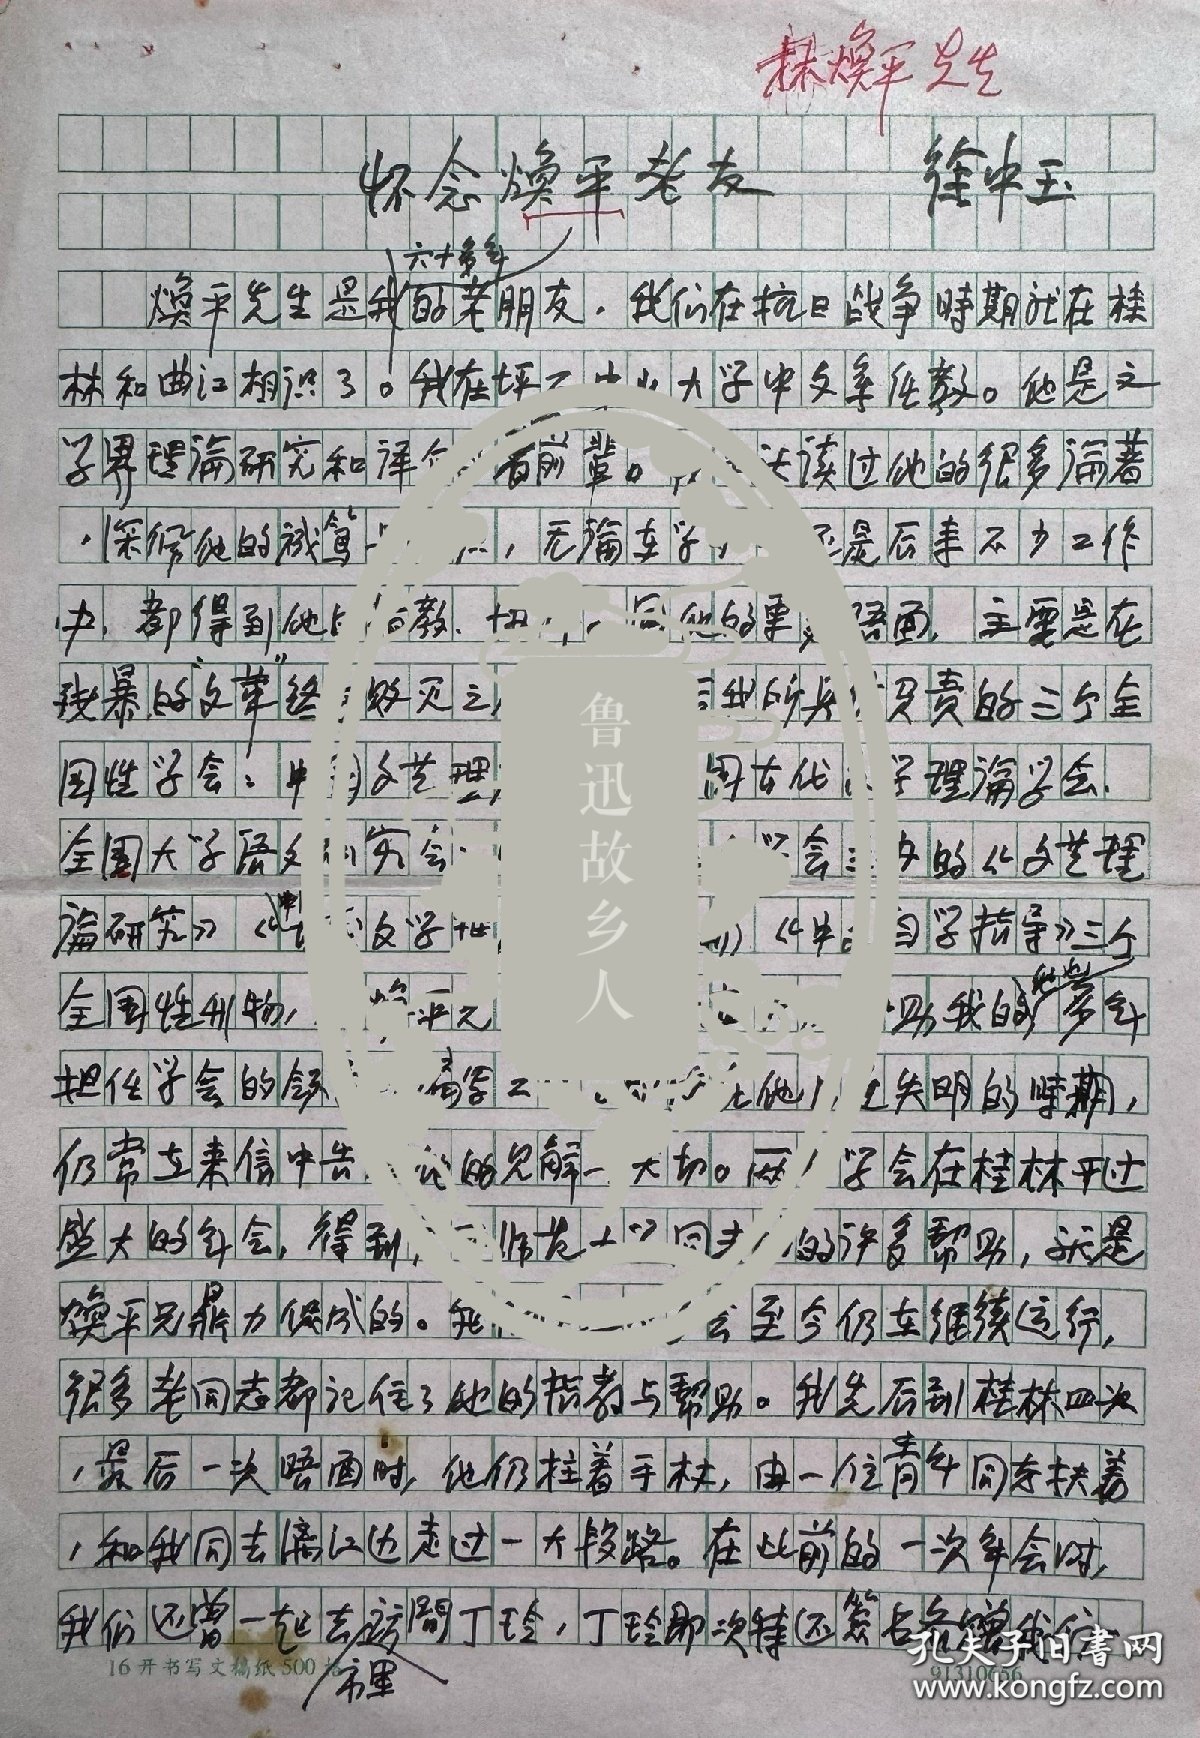 林焕平先生
怀念焕平老友 徐中玉
六十多年
焕平先生是我的老朋友。我们在抗日战争時期就在桂
林和曲江相识了。我在坪石中山大学中文系任教。他是文
学界理論研究和译介的前輩。读过他的很多論著
，深佩他的诚篤，无論在学还是后来不少工作
中，都得到他指教、他的重晤面，主要是在
残暴的“文革”终灭之我的共负责的三个全
国性学会：中国文艺理国古代文学理論学会、
全国大学语文研究会学会主办的《文艺理
論研究》《古代文学《中文自学指导》三个
全国性刊物，焕平兄助我的他也多年
担任学会的领编写工他失明的時期，
仍常在来信中告的见解一大切。两学会在桂林开过
盛大的年会，得到师范大学同志的许多帮助，就是
焕平兄鼎力促成的。我会至今仍在继续运行，
很多老同志都记住了他的指教与帮助。我先后到桂林四次
，最后一次晤面时，他仍柱着手杖，由一位青年同志扶着
，和我同去漓江边走过一大段路。在此前的一次年会时，
我们还曾一起去访問丁玲，丁玲那次特还签名
市里
16开书写文稿纸500格
91310656
鲁迅故乡人
孔夫子旧书网
www.kongfz.com